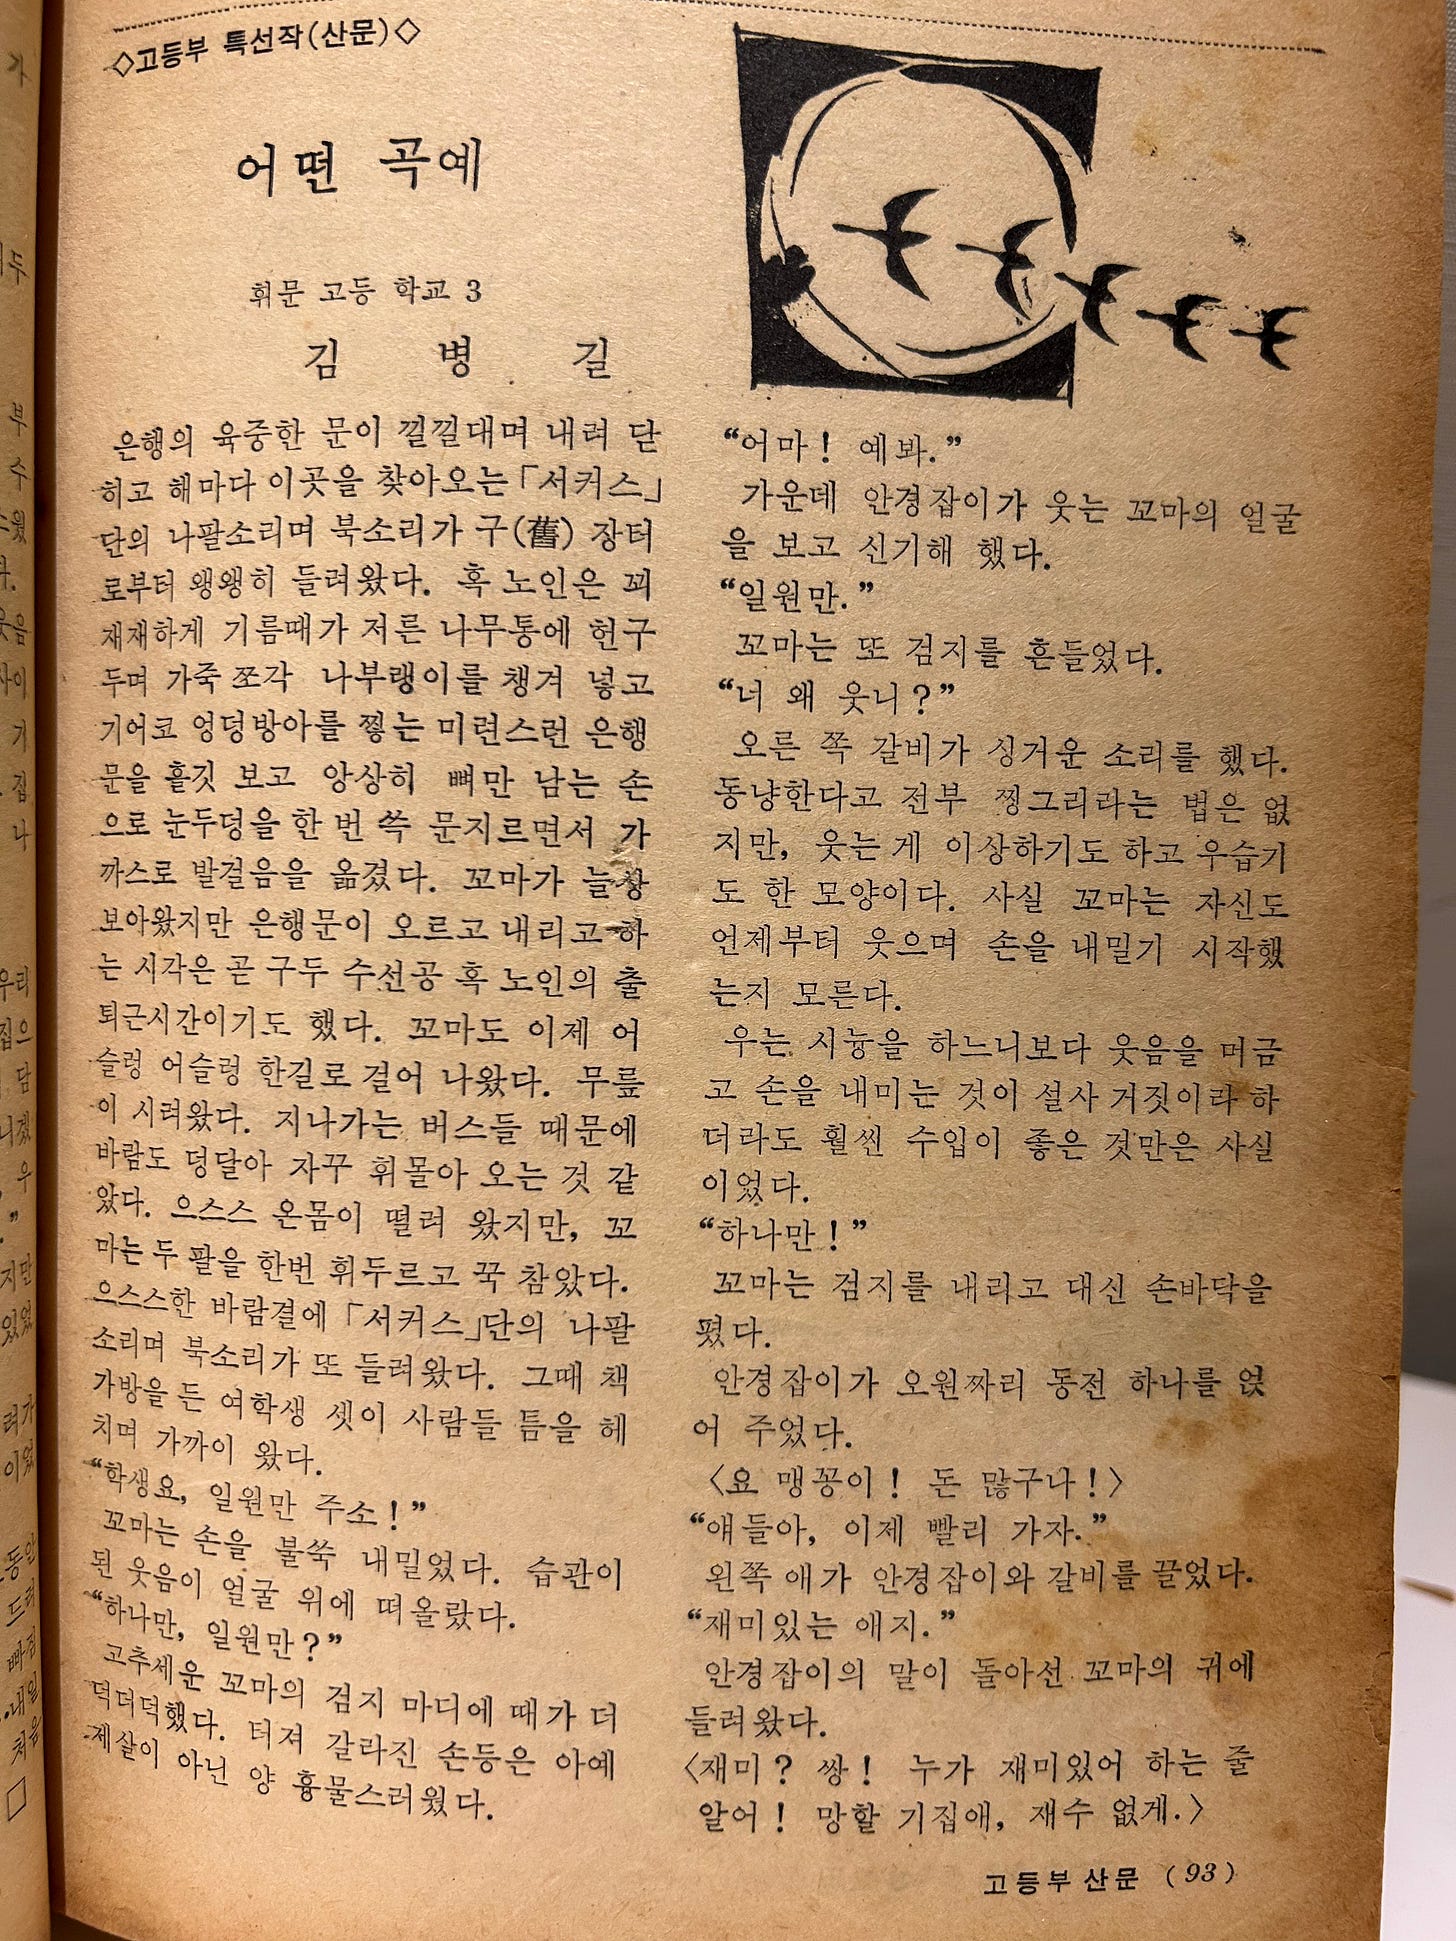 ◇고등부 특선작(산문)◇
어떤 곡예
휘문 고등 학교 3
김 병 길
은행의 육중한 문이 낄낄대며 내려 닫
히고 해마다 이곳을 찾아오는「서커스」
단의 나팔소리며 북소리가 구(舊) 장터
로부터 왱왱히 들려왔다. 혹 노인은 꾀
재재하게 기름때가 저른 나무통에 헌구
두며 가죽 쪼각 나부랭이를 챙겨 넣고
기어코 엉덩방아를 찧는 미련스런 은행
문을 흩깃 보고 앙상히 뼈만 남는 손
으로 눈두덩을 한 번 쓱 문지르면서 가
까스로 발걸음을 옮겼다. 꼬마가 늘상
보아왔지만 은행문이 오르고 내리고 하
는 시각은 곧 구두 수선공 혹 노인의 출
퇴근시간이기도 했다. 꼬마도 이제 어
슬렁 어슬렁 한길로 걸어 나왔다. 무릎
이 시려왔다. 지나가는 버스들 때문에
바람도 덩달아 자꾸 휘몰아 오는 것 같
았다. 으스스 온몸이 떨려 왔지만, 꼬
마는 두 팔을 한번 휘두르고 꾹 참았다.
으스스한 바람결에「서커스」단의 나팔
소리며 북소리가 또 들려왔다. 그때 책
가방을 든 여학생 셋이 사람들 틈을 헤
치며 가까이 왔다.
“학생요, 일원만 주소!”
꼬마는 손을 불쑥 내밀었다. 습관이
된 웃음이 얼굴 위에 떠올랐다.
“하나만, 일원만?”
고추세운 꼬마의 검지 마디에 때가 더
덕더덕했다. 터져 갈라진 손등은 아예
제살이 아닌 양 흉물스러웠다.
“어마! 예봐.”
가운데 안경잡이가 웃는 꼬마의 얼굴
을 보고 신기해 했다.
“일원만.”
꼬마는 또 검지를 흔들었다.
“너 왜 웃니?”
오른 쪽 갈비가 싱거운 소리를 했다.
동냥한다고 전부 찡그리라는 법은 없
지만, 웃는 게 이상하기도 하고 우습기
도 한 모양이다. 사실 꼬마는 자신도
언제부터 웃으며 손을 내밀기 시작했
는지 모른다.
우는 시늉을 하느니보다 웃음을 머금
고 손을 내미는 것이 설사 거짓이라 하
더라도 훨씬 수입이 좋은 것만은 사실
이었다.
“하나만!”
꼬마는 검지를 내리고 대신 손바닥을
폈다.
안경잡이가 오원짜리 동전 하나를 얹
어 주었다.
〈요 맹꽁이! 돈 많구나!〉
“얘들아, 이제 빨리 가자.”
왼쪽 애가 안경잡이와 갈비를 끌었다.
“재미있는 애지.”
안경잡이의 말이 돌아선 꼬마의 귀에
들려왔다.
〈재미? 쌍! 누가 재미있어 하는 줄
알어! 망할 기집애, 재수 없게.〉
고등부 산문 (93)